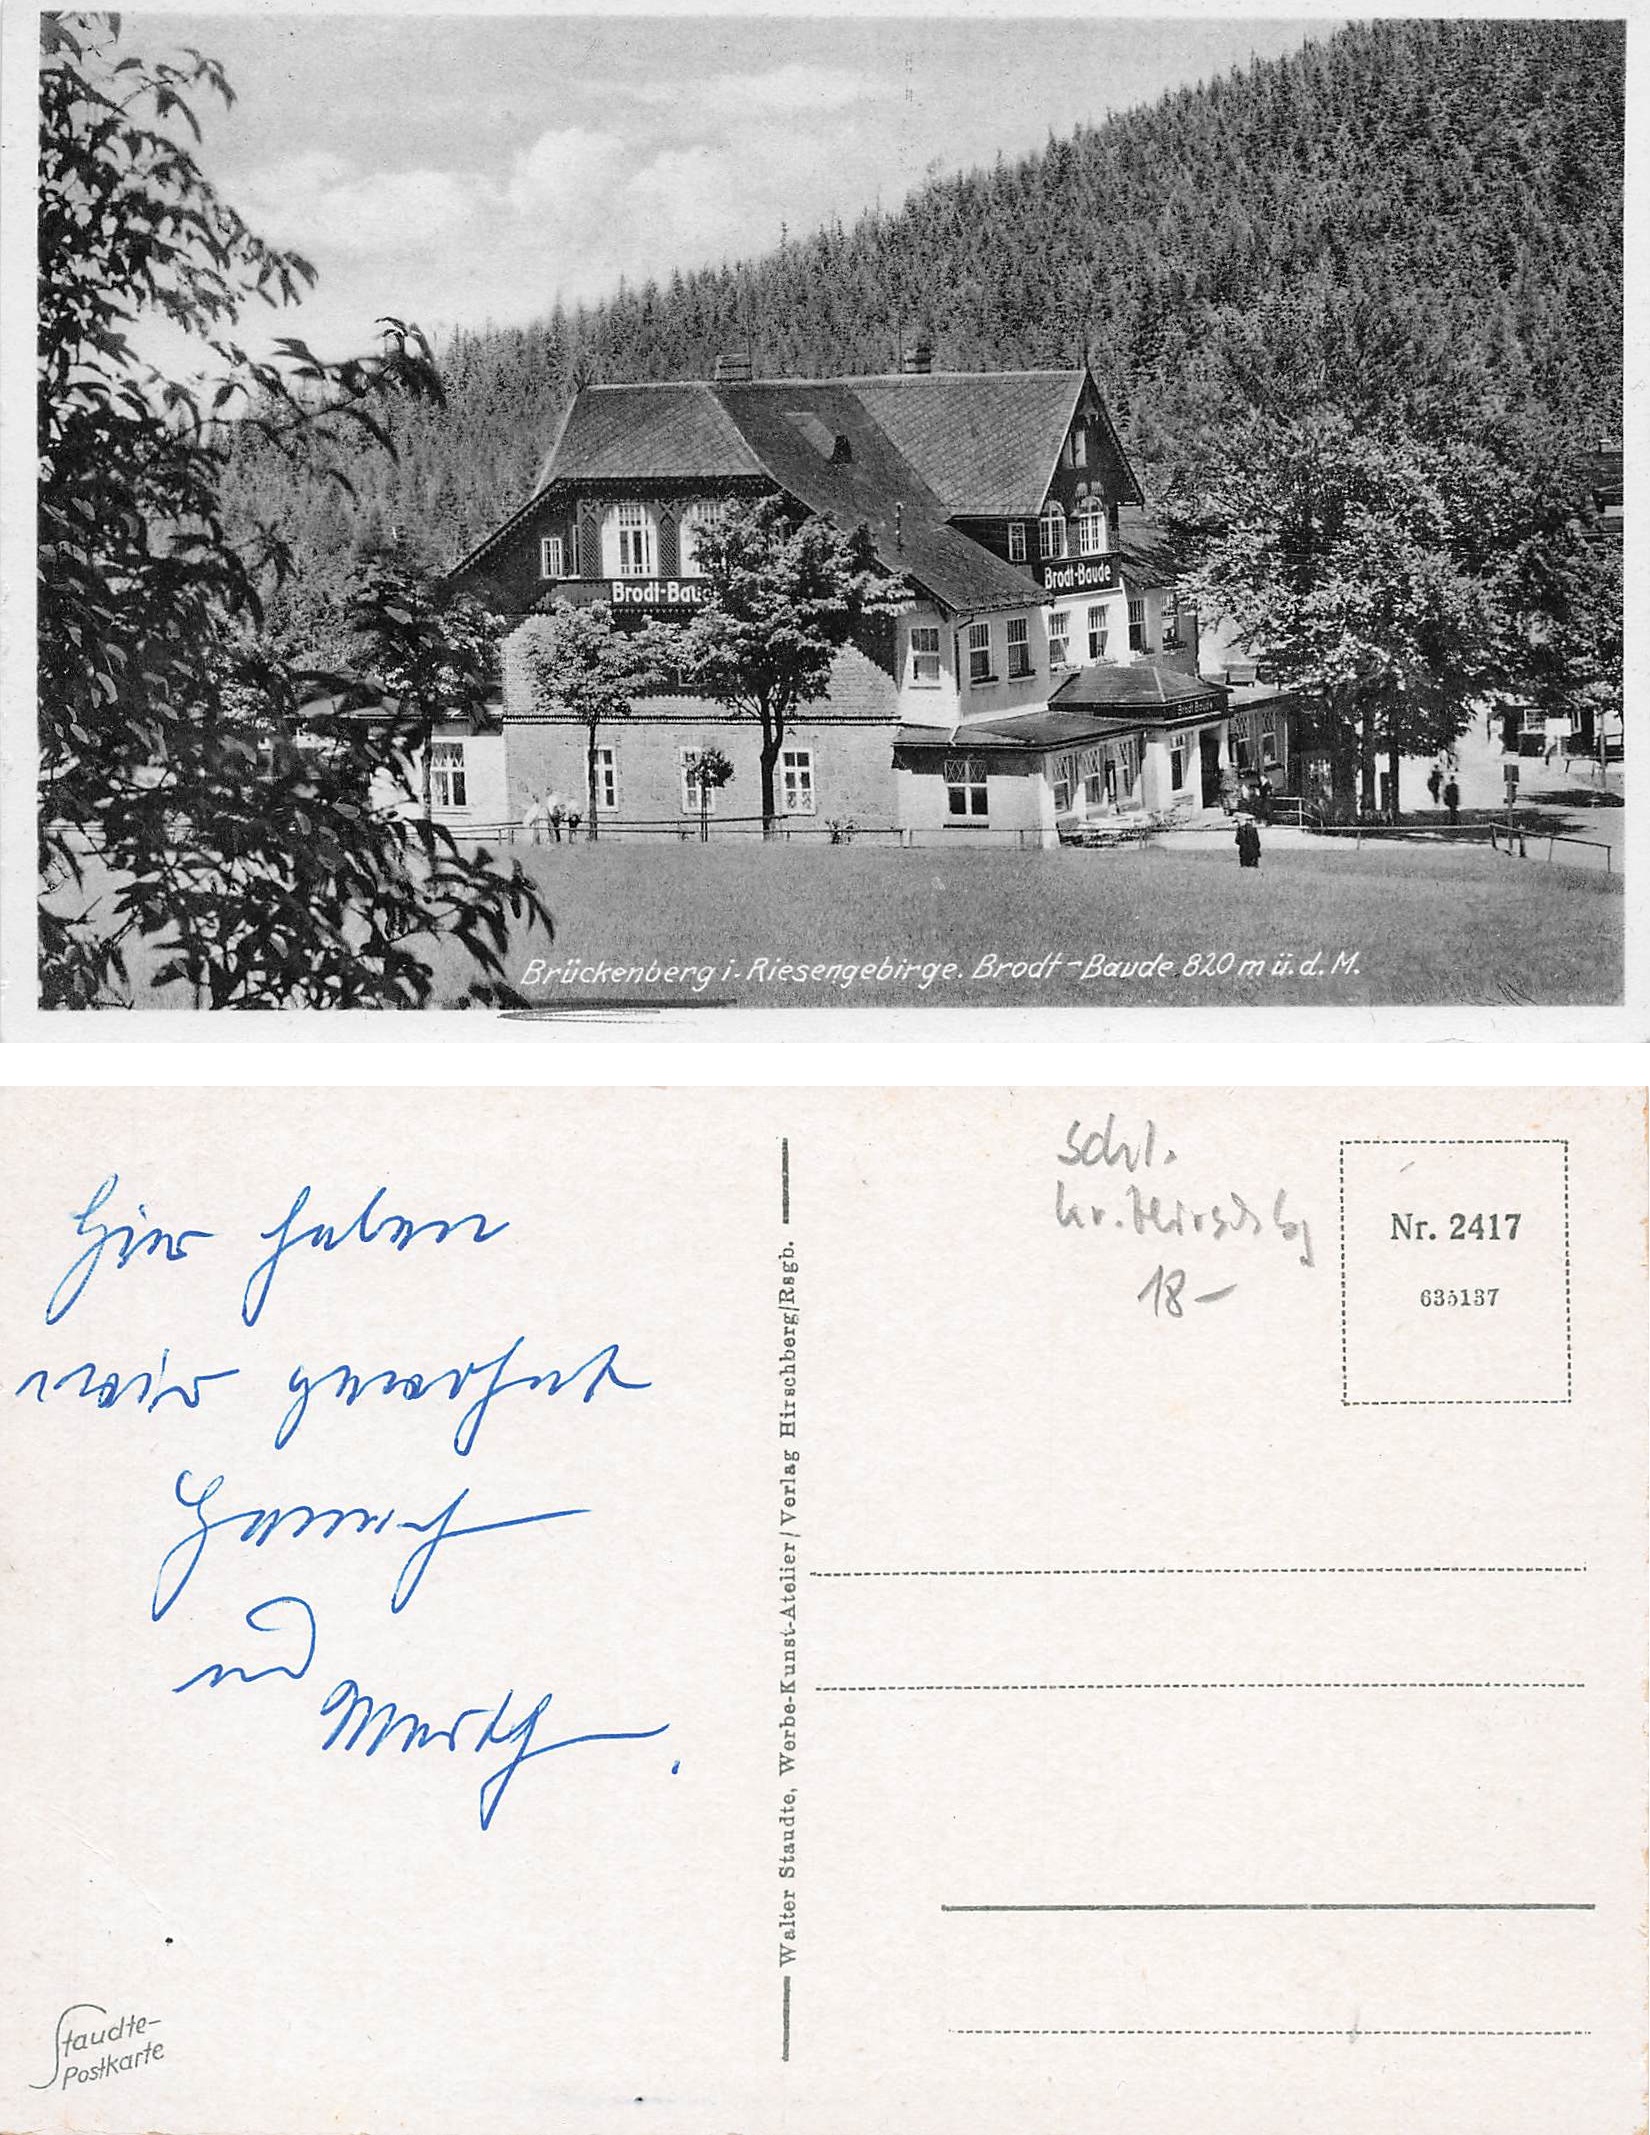 Brodt-Baude
Brodt-Baude
Brodt-Baude
Brückenberg i. Riesengebirge. Brodt-Baude 820 m ü. d. M.
Hier haben
wir gewohnt
und
Staudte-
Postkarte
Walter Staudte, Werbe-Kunst-Atelier/Verlag Hirschberg/Rsgb.
Schl.
kr. Hirschbg
18-
Nr. 2417
635137